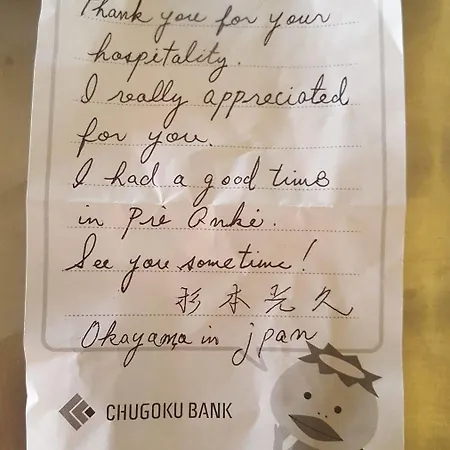 Thank you for your
hospitality.
I really appreciated
for you.
I had a good time
in Pie Anké.
See you sometime!
杉本光久
Okayama in jpan
CHUGOKU BANK